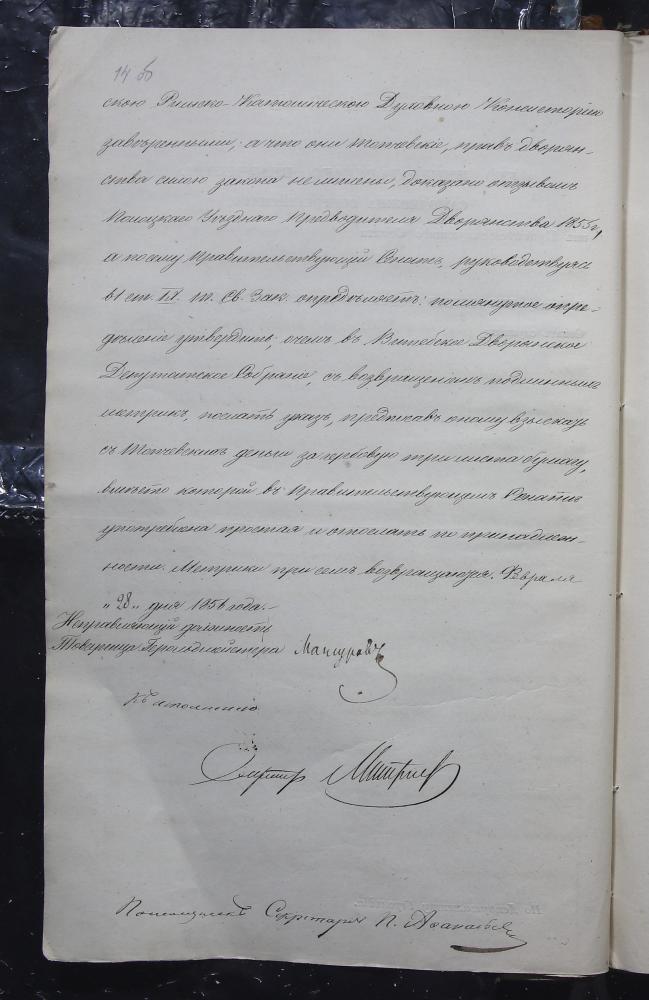 14 об
скою Римско-Католическою Духовною Консисторіею
завѣренными; а что они Тотчевскіе, правъ дворян-
ства силою закона не лишены, доказано отзывомъ
Полоцкаго Уѣзднаго Предводителя Дворянства 1855 г.,
а посему Правительствующій Сенатъ, руководствуясь
ст. IX т. Св. Зак. опредѣляетъ: помянутое опре-
дѣленіе утвердить, о чемъ въ Витебское Дворянское
Депутатское Собраніе, съ возвращеніемъ подлинныхъ
метрикъ, послать указъ, предписавъ оному взыскать
съ Тотчевскихъ деньги за гербовую три листа бумагу,
вмѣсто которой въ Правительствующемъ Сенатѣ
употреблена простая и отослать по принадлеж-
ности. Метрики при семъ возвращаются. Февраля
„28„ дня 1856 года.
Исправляющій должность
Товарища Герольдмейстера Мансуровъ
Къ исполненію
Секретарь
Помощникъ Секретаря П. Аѳанасьевъ